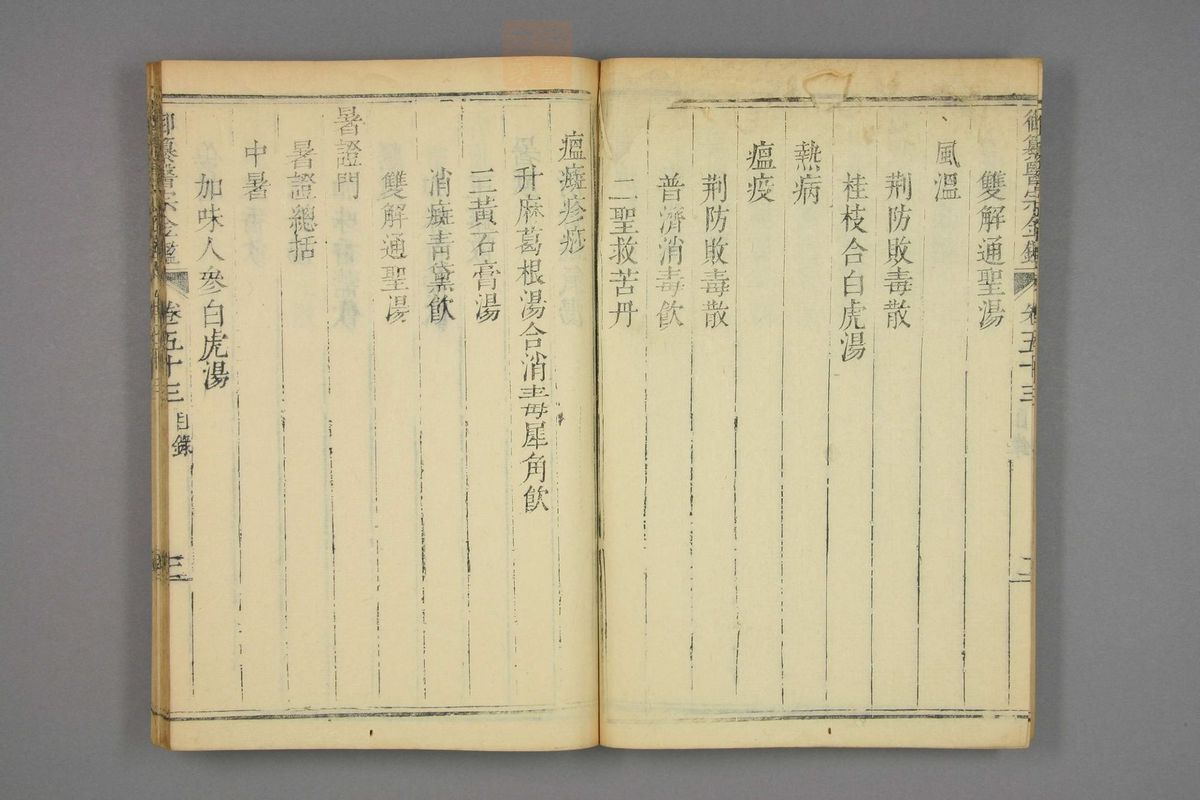 御纂醫宗金鑑 卷五十三 目錄 二
雙解通聖湯
風溫
荆防敗毒散
桂枝合白虎湯
熱病
瘟疫
荆防敗毒散
普濟消毒飲
二聖救苦丹
瘟癍疹痧
升麻葛根湯合消毒犀角飲
三黃石膏湯
消癍青黛飲
雙解通聖湯
暑證門
暑證總括
中暑
加味人參白虎湯
御纂醫宗金鑑 卷五十三 目錄 三